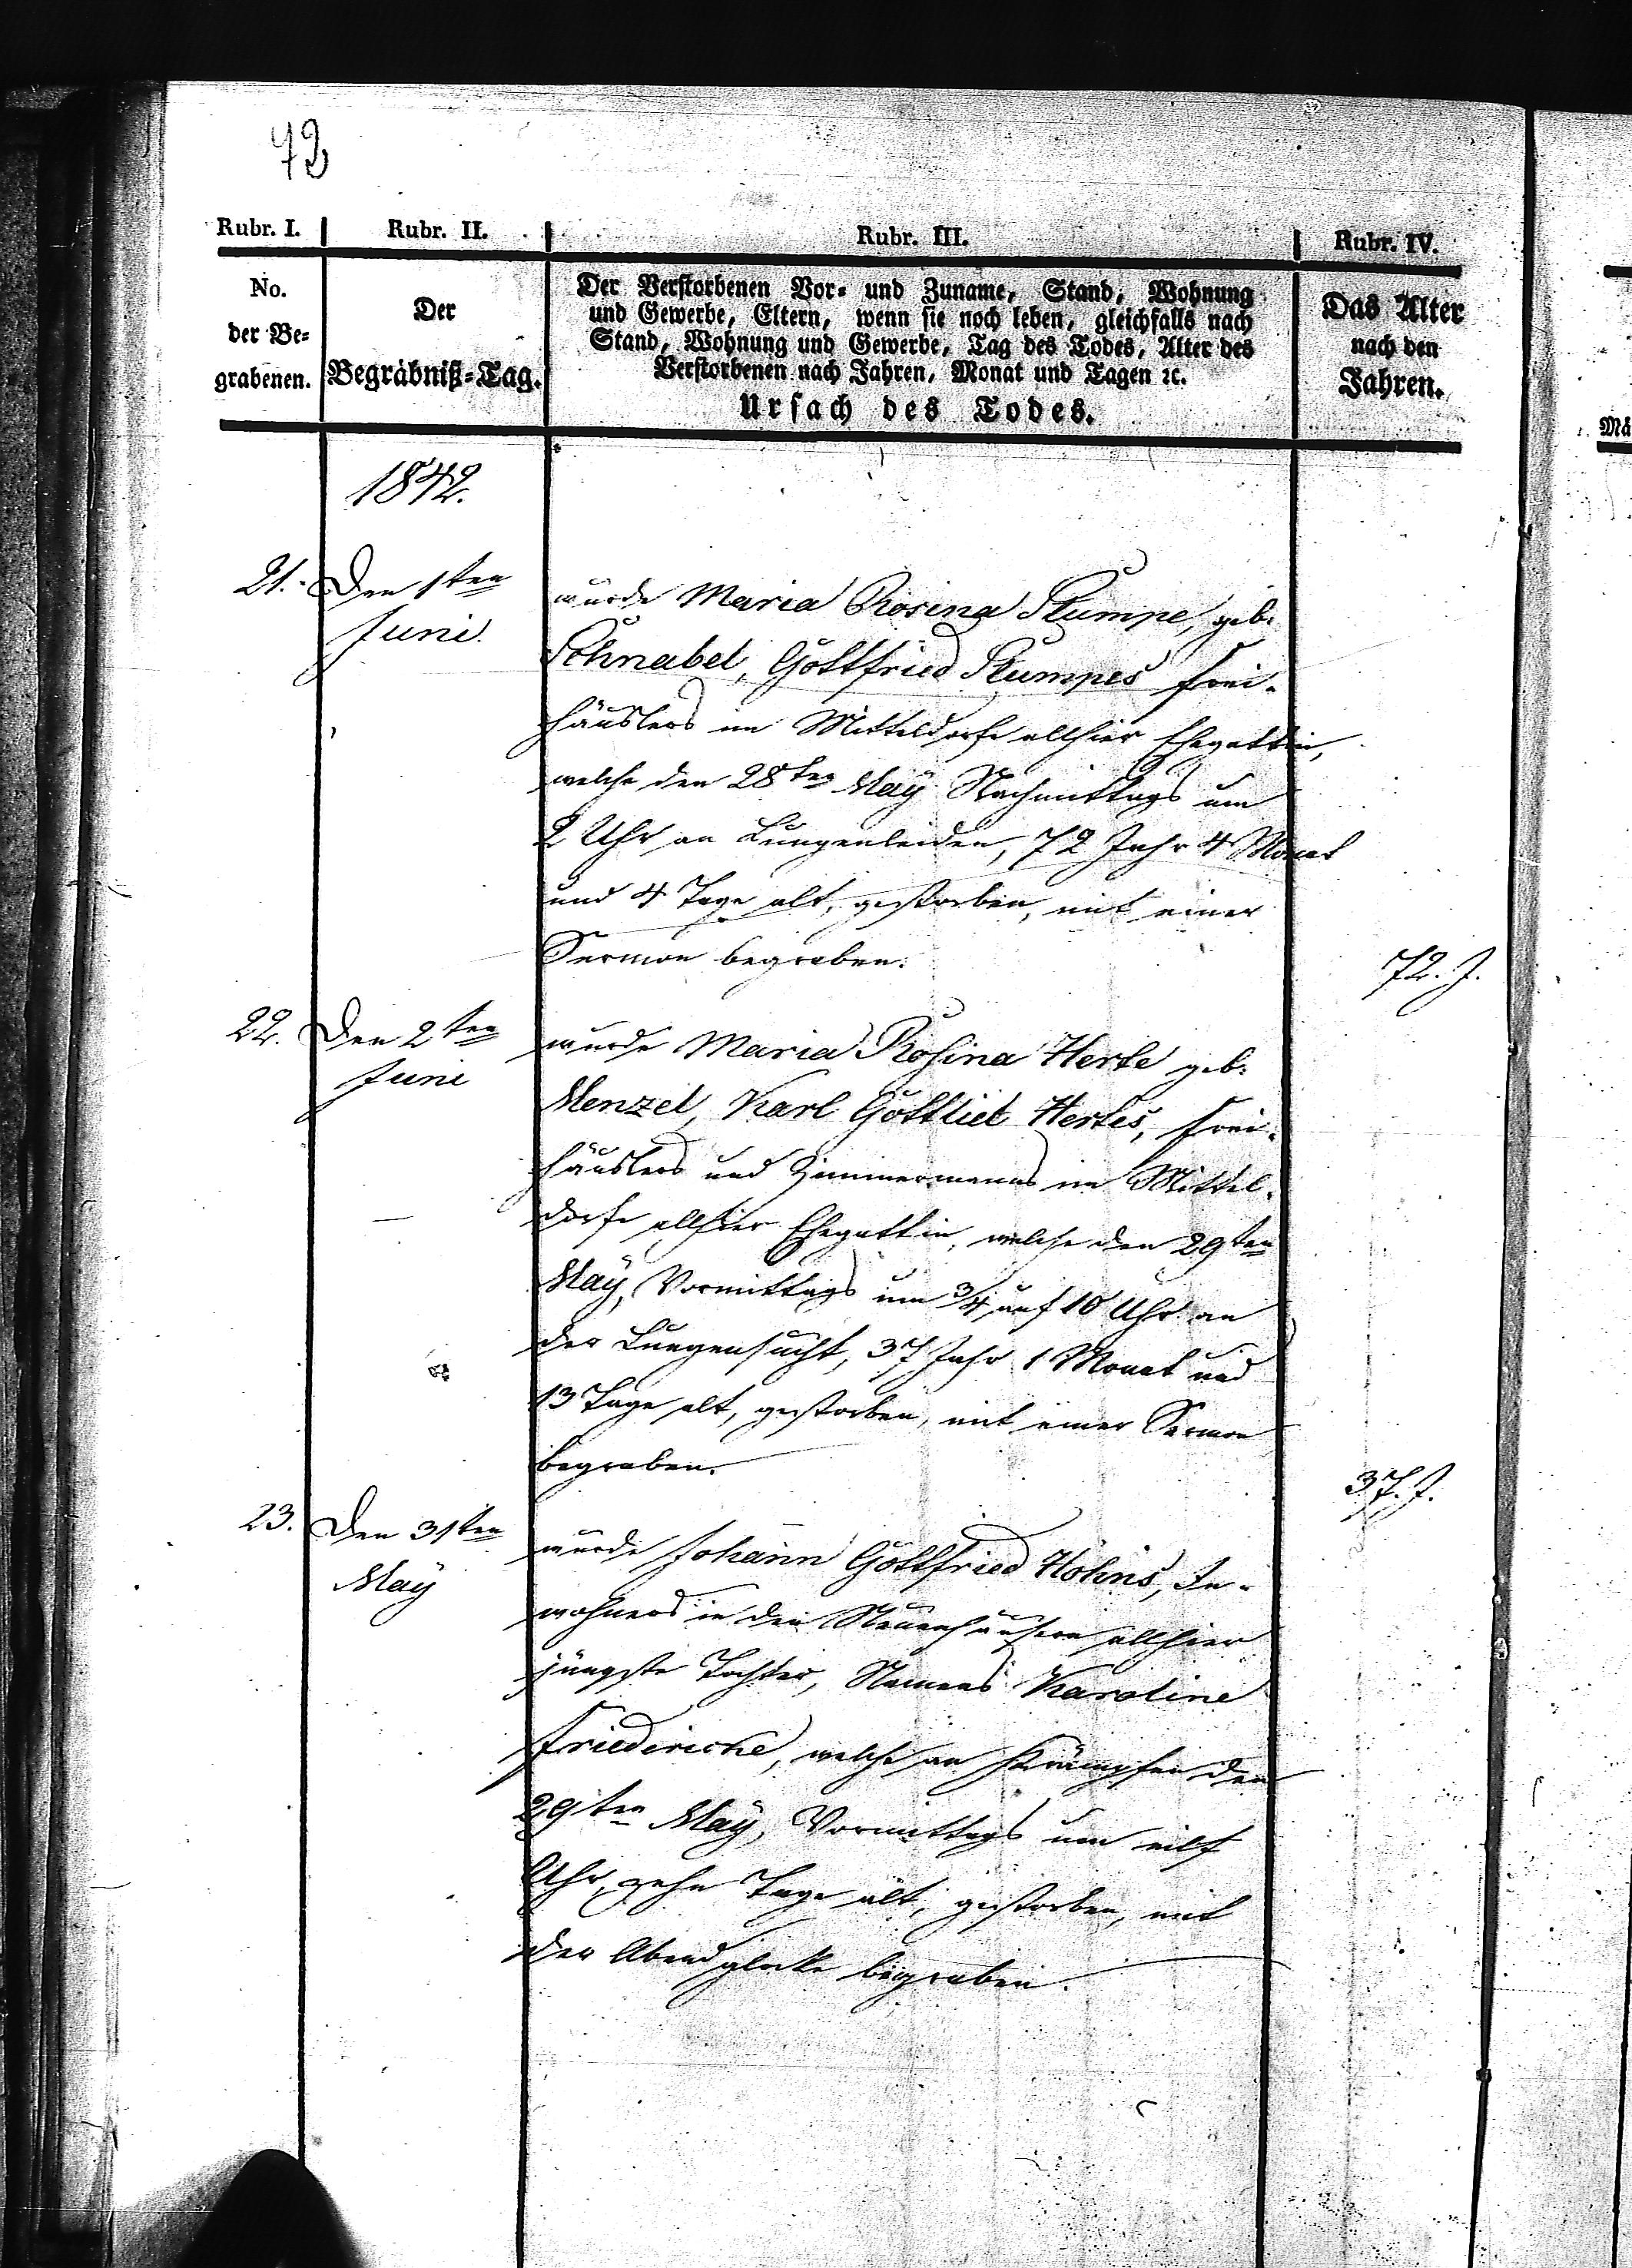 42
Rubr. I. Rubr. II. Rubr. III. Rubr. IV.
No.
der Be=
grabenen.
Der
Begräbniß=Tag.
Der Verstorbenen Vor= und Zuname, Stand, Wohnung
und Gewerbe, Eltern, wenn sie noch leben, gleichfalls nach
Stand, Wohnung und Gewerbe, Tag des Todes, Alter des
Verstorbenen nach Jahren, Monat und Tagen ꝛc.
Ursach des Todes.
Das Alter
nach den
Jahren.
Mä
1842.
21. Den 1ten
Juni.
wurde Maria Rosina Stumpe, geb.
Schnabel, Gottfried Stumpes Frei-
häuslers im Mitteldorfe allhier Ehegattin,
welche den 28ten May Nachmittags um
2 Uhr an Lungenleiden, 72 Jahr 4 Monat
und 4 Tage alt, gestorben, mit einer
Sermon begraben.
72. J.
22. Den 2ten
Juni
wurde Maria Rosina Herbe geb.
Menzel, Karl Gottlieb Herbes, Frei-
häuslers und Zimmermanns im Mittel-
dorfe allhier Ehegattin, welche den 29ten
May, Vormittags um 3/4 auf 10 Uhr an
der Lungensucht, 37 Jahr 1 Monat und
13 Tage alt, gestorben, mit einer Sermon
begraben.
37. J.
23. Den 31ten
May
wurde Johann Gottfried Höhns, In-
wohners in den Neuenhäusern allhier
jüngste Tochter, Namens Karoline
Friedericke, welche an Krämpfen den
29ten May, Vormittags um eilf
Uhr, zehn Tage alt, gestorben, mit
der Abendglocke begraben.